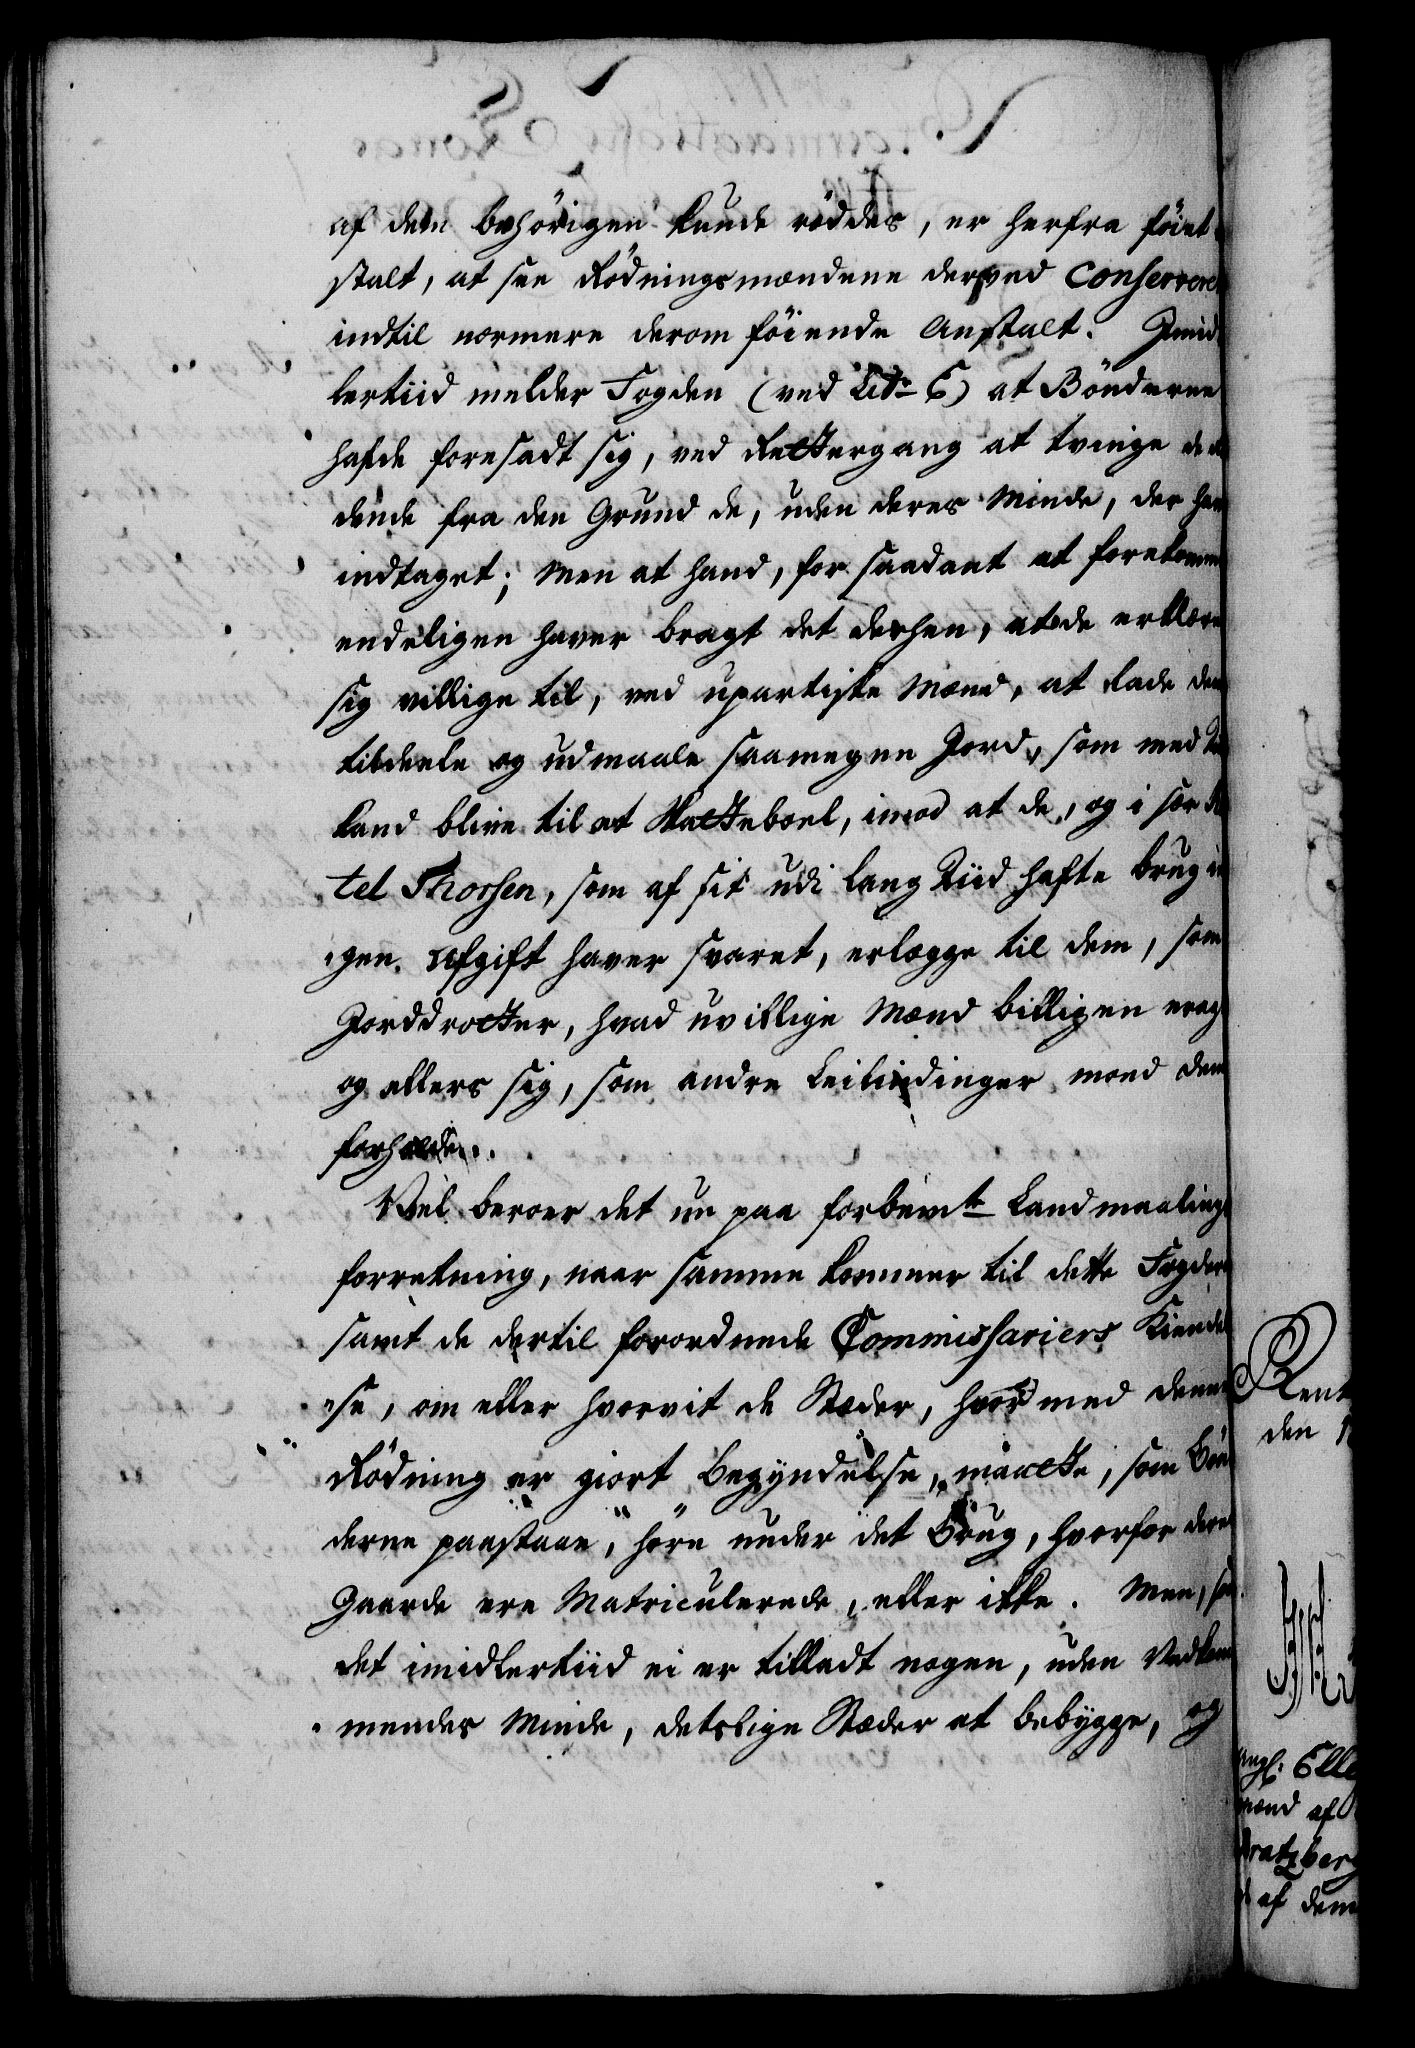 af dem behörigen kunde röddes, er herfra föiet
stalt, at see Rödningsmændene derved Conserveret
indtil nærmere derom föiende Anstalt. Jmid
lertiid melder Fogden (ved Litr: E) at Bönderne
hafde foresadt sig, ved Rettergang at tvinge de
dende fra den Grund de, uden deres Minde, der
indtaget; Men at hand, for saadant at forekomme
endeligen haver bragt det derhen, at de erklære
sig villige til, ved upartiske Mænd, at lade dem
tildeele og udmaale saamegen Jord, som med
kand blive til at Skatteboel, imod at de, og i sær
tel Thorsen, som af sit udi lang Tiid hafte brug in
gen Afgift haver svaret, erlægge til dem, som
Jorddrotter, hvad uvillige Mænd billigen erag
og ellers sig, som andre Leilindinger moed dem
forholde.
Vel beroer det nu paa forbemte Landmaalings
forretning, naar samme kommer til dette Fogderi
samt de dertil forordnede Commissariers Kiendel
se, om eller hvorvit de Stæder, hvor med denne
Rödning er giort begyndelse, maatte, som Bön
derne paastaae, höre under det Brug, hvorfor deres
Gaarde ere Matriculerede, eller ikke. Men, som
det imidlertiid ei er tilladt nogen, uden Vedkom
mendes Minde, detslige Stæder at bebygge, og
Rent
den
Elle
mænd af
Kratzberg
af dem